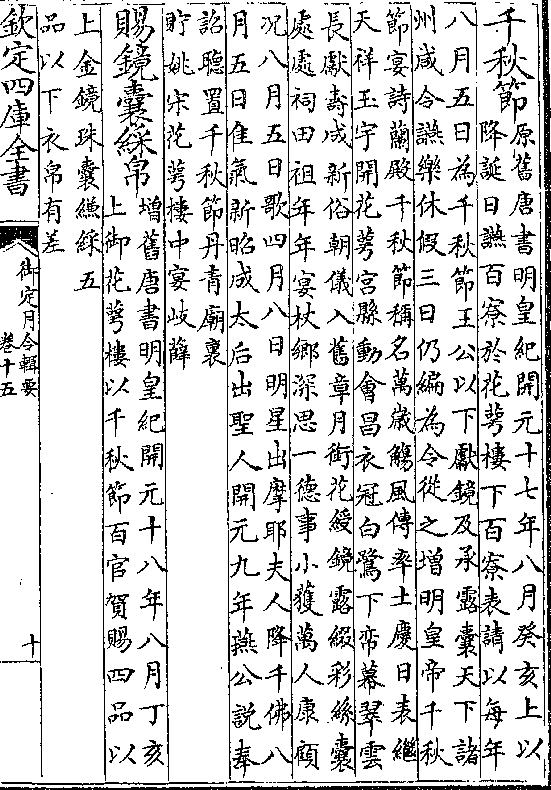 千秋節原舊唐書明皇紀開元十七年八月癸亥上以
降誕日讌百寮於花萼樓下百寮表請以每年
八月五日為千秋節王公以下獻鏡及承露囊天下諸
州咸令讌樂休假三日仍編為令從之增明皇帝千秋
節宴詩蘭殿千秋節稱名萬歲觴風傳率土慶日表繼
天祥玉宇開花萼宮縣動會昌衣冠白鷺下帟幕翠雲
長獻壽成新俗朝儀入舊章月銜花綬鏡露綴彩絲囊
處處祠田祖年年宴杖鄉深思一德事小獲萬人康顧
况八月五日歌四月八日明星出摩耶夫人降千佛八
月五日佳氣新昭成太后出聖人開元九年燕公說奉
詔聽置千秋節丹青廟裏
貯姚宋花萼樓中宴岐薛
賜鏡囊綵帛增舊唐書明皇紀開元十八年八月丁亥
上御花萼樓以千秋節百官賀賜四品以
上金鏡珠囊縑綵五
品以下衣帛有差
欽定四庫全書
御定月令輯要
卷十五
十